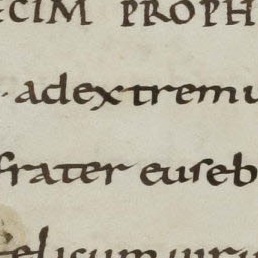 ECIM PROPH
· adextremu
frater euseb
felicum uiru